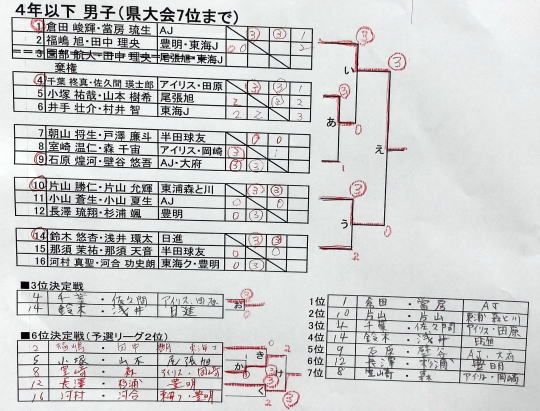 4年以下 男子(県大会7位まで)
1 倉田 峻輝・當房 琉生 AJ ③ ③ 1
2 福嶋 旭・田中 理央 豊明・東海J 0 0 2
3 園部 航人・田中 理央 尾張旭・東海J
棄権
4 千葉 柊真・佐久間 瑛士郎 アイリス・田原 ③ ③ 1
5 小塚 祐哉・山本 樹希 尾張旭 2 ③ 2
6 井手 壮介・村井 智 東海J 2 2 3
7 朝山 将生・戸澤 廉斗 半田球友 0 0
8 室崎 温仁・森 千宙 アイリス・岡崎 ③
9 石原 煌河・壁谷 悠吾 AJ・大府 ③ ③
10 片山 勝仁・片山 允輝 東浦森と川 ③ ③
11 小山 蒼生・小山 夏生 AJ 0 0
12 長澤 琉翔・杉浦 颯 豊明 0 ③
14 鈴木 悠杏・浅井 環太 日進 ③ ③
15 那須 茉祐・那須 天音 半田球友 0 0
16 河村 真聖・河合 功史朗 東海ク・豊明 0 ③
い
あ
え
う
③
③
③
③
0
1
0
0
2
■3位決定戦
4 千葉・佐久間 アイリス・田原
14 鈴木・浅井 日進
お
0
■6位決定戦(予選リーグ2位)
2 福嶋・田中
5 小塚・山本 尾張旭
8 室崎・森 アイリス・岡崎
12 長澤・杉浦 豊明
16 河村・河合
き
か
け
く
1位 1 倉田・當房 AJ
2位 10 片山・片山 東浦森と川
3位 4 千葉・佐久間 アイリス・田原
4位 14 鈴木・浅井 日進
5位 9 石原・壁谷 AJ・大府
6位 12 長澤・杉浦 豊明
7位 8 室崎・森 アイリス・岡崎